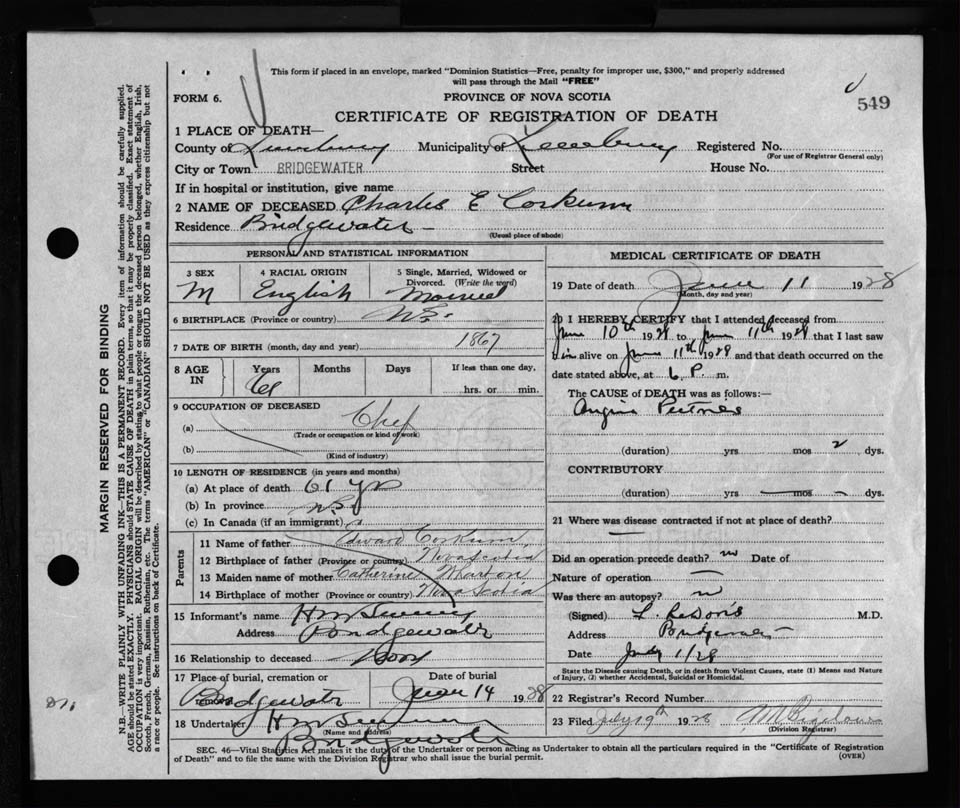 This form if placed in an envelope, marked "Dominion Statistics—Free, penalty for improper use, $300," and properly addressed
will pass through the Mail "FREE"
FORM 6.
PROVINCE OF NOVA SCOTIA
549
CERTIFICATE OF REGISTRATION OF DEATH
1 PLACE OF DEATH—
County of Lunenburg Municipality of Lunenburg Registered No.
(For use of Registrar General only)
City or Town BRIDGEWATER Street House No.
If in hospital or institution, give name
2 NAME OF DECEASED Charles E Corkum
Residence Bridgewater
(Usual place of abode)
PERSONAL AND STATISTICAL INFORMATION
3 SEX 4 RACIAL ORIGIN 5 Single, Married, Widowed or
Divorced. (Write the word)
M English Married
6 BIRTHPLACE (Province or country) N.S.
7 DATE OF BIRTH (month, day and year) 1867
8 AGE IN Years Months Days If less than one day,
61 hrs. or min.
9 OCCUPATION OF DECEASED
(a) Chef
(Trade or occupation or kind of work)
(b)
(Kind of industry)
10 LENGTH OF RESIDENCE (in years and months)
(a) At place of death 61 yrs
(b) In province N.S.
(c) In Canada (if an immigrant)
Parents
11 Name of father Edward Corkum
12 Birthplace of father (Province or country) Nova Scotia
13 Maiden name of mother Catherine
14 Birthplace of mother (Province or country) Nova Scotia
15 Informant's name
Address Bridgewater
16 Relationship to deceased
17 Place of burial, cremation or Date of burial
Bridgewater June 14 1928
18 Undertaker
(Name and address)
Bridgewater
MEDICAL CERTIFICATE OF DEATH
19 Date of death June 11 1928
(Month, day and year)
20 I HEREBY CERTIFY that I attended deceased from
June 10th 1928 to June 11th 1928 that I last saw
him alive on June 11th 1928 and that death occurred on the
date stated above, at 6 P. m.
The CAUSE of DEATH was as follows:—
Angina Pectoris
(duration) yrs mos 2 dys.
CONTRIBUTORY
(duration) yrs mos dys.
21 Where was disease contracted if not at place of death?
Did an operation precede death? no Date of
Nature of operation
Was there an autopsy? no
(Signed) M.D.
Address Bridgewater
Date July 1/28
State the Disease causing Death, or in death from Violent Causes, state (1) Means and Nature
of Injury, (2) whether Accidental, Suicidal or Homicidal.
22 Registrar's Record Number
23 Filed July 19th 1928
(Division Registrar)
SEC. 46—Vital Statistics Act makes it the duty of the Undertaker or person acting as Undertaker to obtain all the particulars required in the "Certificate of Registration
of Death" and to file the same with the Division Registrar who shall issue the burial permit.
(OVER)
MARGIN RESERVED FOR BINDING
N.B.—WRITE PLAINLY WITH UNFADING INK—THIS IS A PERMANENT RECORD. Every item of information should be carefully supplied.
AGE should be stated EXACTLY. PHYSICIANS should STATE CAUSE OF DEATH in plain terms so that it may be properly classified. Exact statement of
OCCUPATION is very important. RACIAL ORIGIN will be described by stating to what people or tongue the deceased person belonged, whether English, Irish,
Scotch, French, German, Russian, Ruthenian, etc. The terms "AMERICAN" or "CANADIAN" SHOULD NOT BE USED as they express citizenship but not
a race or people. See instructions on back of Certificate.